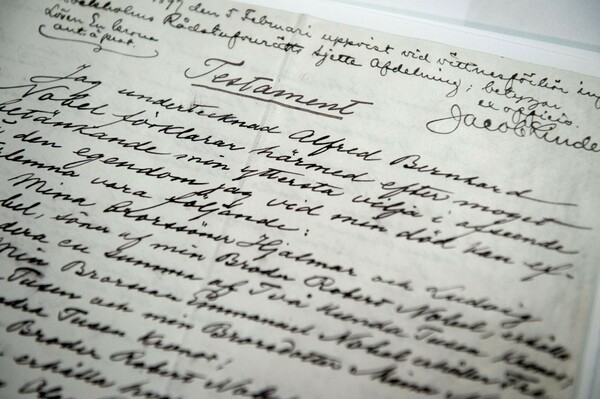 1897 den 5 Februari uppvist vid vittnesförhör inför
Stockholms Rådstufvurätts sjette Afdelning; betygar
Lösen En krona
ex officio.
Jacob Linde
Testament
Jag undertecknad Alfred Bernhard
Nobel förklarar härmed efter moget
betänkande min yttersta vilja i afseende
å den egendom jag vid min död kan ef-
terlemna vara följande:
Mina Brorsöner Hjalmar och Ludvig
Nobel, söner af min Broder Robert Nobel, erhålla
en Summa af Två Hundra Tusen Kronor;
Min Brorson Emmanuel Nobel erhåller Tre
Tusen och min Brorsdotter Mina
Hundra Tusen Kronor;
Broder Robert
erhålla